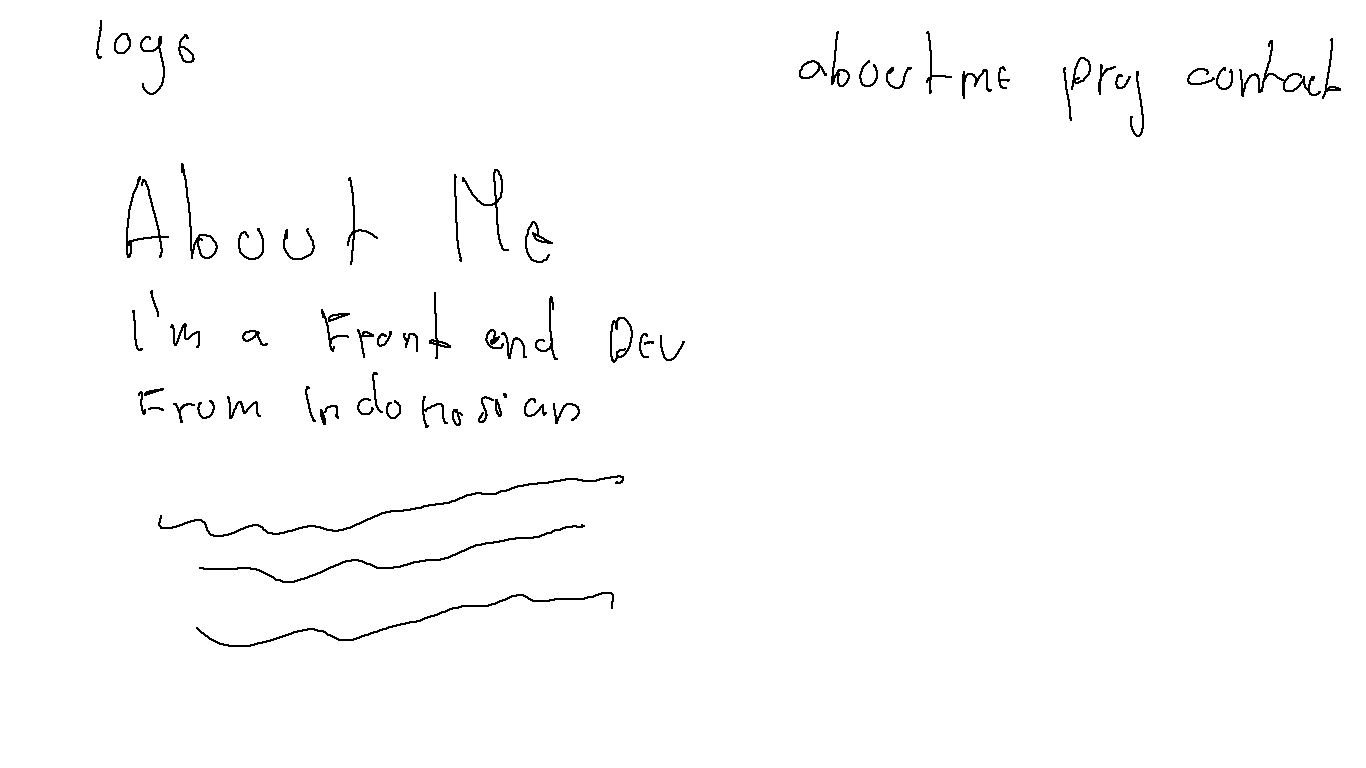 logo
about me proj contact
About Me
I'm a Front end Dev
From Indonesian